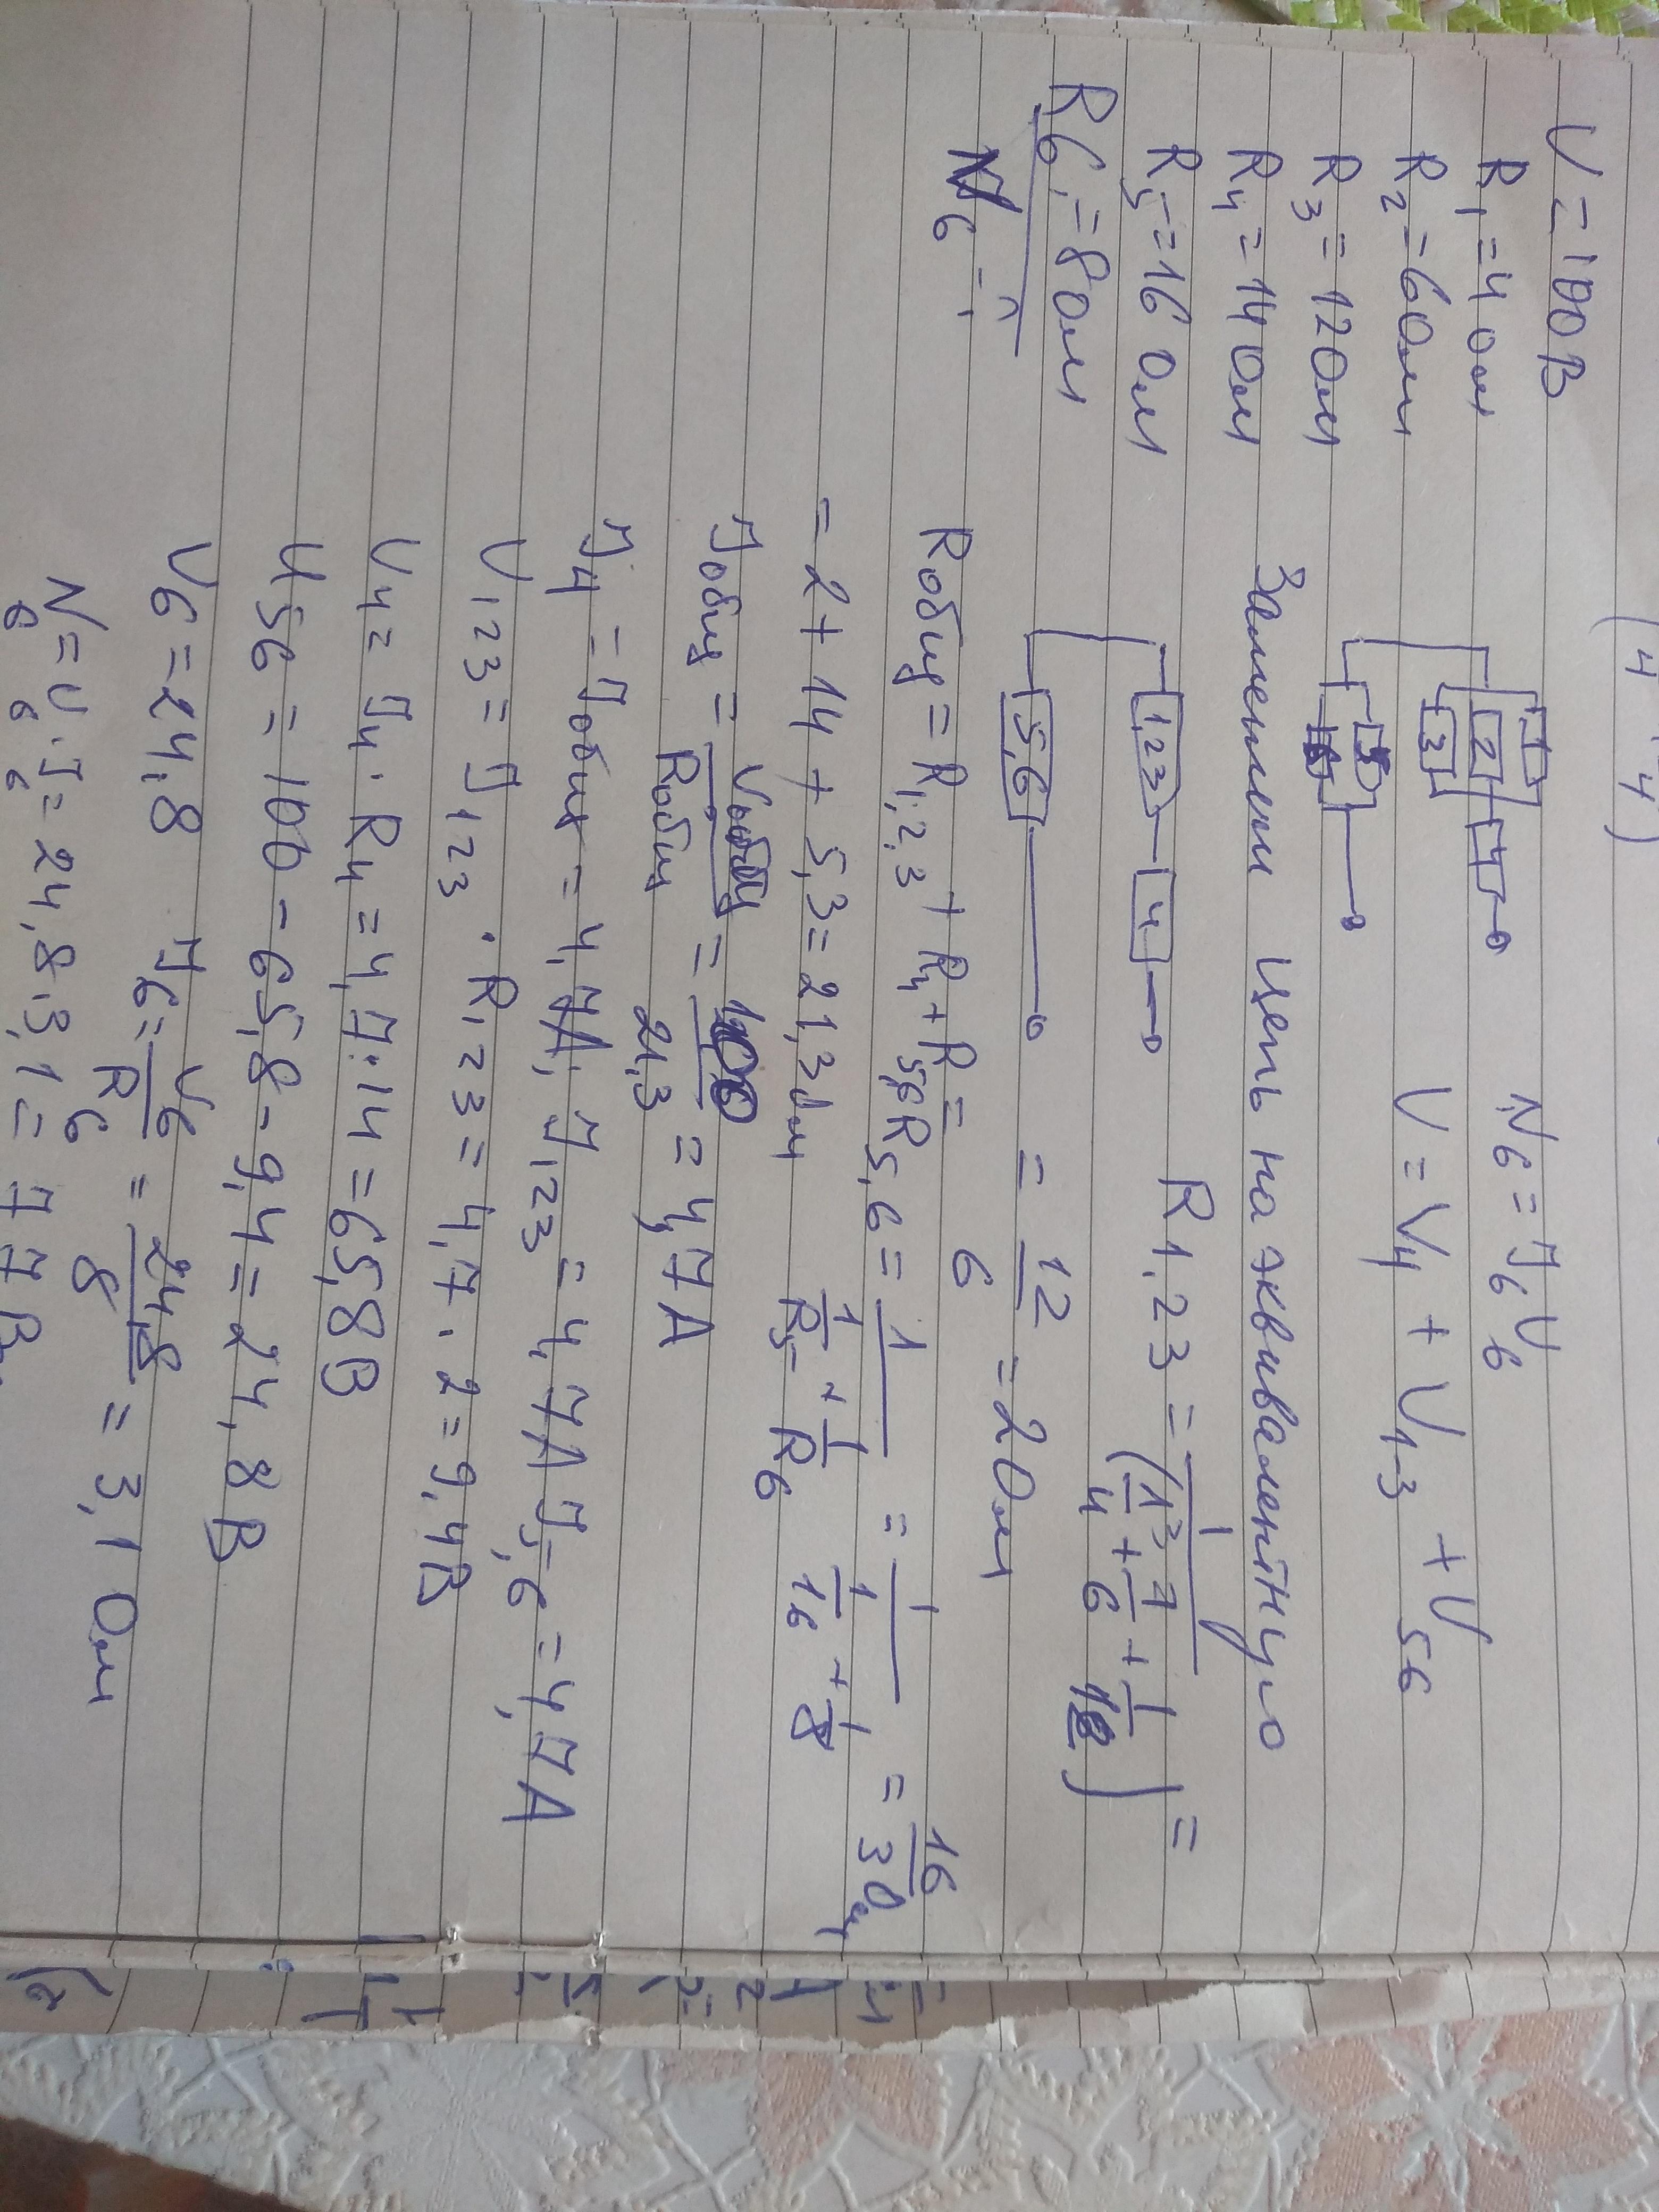 (4 4)
U=100В
R1=4Ом
R2=6Ом
R3=12Ом
R4=14Ом
R5=16Ом
R6=8Ом
N6-?
1
2
3
4
5
N6=J6U6
U=U4+U1-3+U56
Заменим цепь на эквивалентную
1,23
4
5,6
R1,23=1/(1/4+1/6+1/12)=
=12/6=2Ом
Rобщ=R1,2,3+R4+R5,6=
=2+14+5,3=21,3Ом
R5,6=1/(1/R5+1/R6)=1/(1/16+1/8)=16/3Ом
Jобщ=Uобщ/Rобщ=100/21,3=4,7А
J4=Jобщ=4,7А, J123=4,7А J5,6=4,7А
U123=J123·R123=4,7·2=9,4В
U4=J4·R4=4,7·14=65,8В
U56=100-65,8-9,4=24,8В
U6=24,8 J6=U6/R6=24,8/8=3,1Ом
N6=U6·J6=24,8·3,1=77Вт